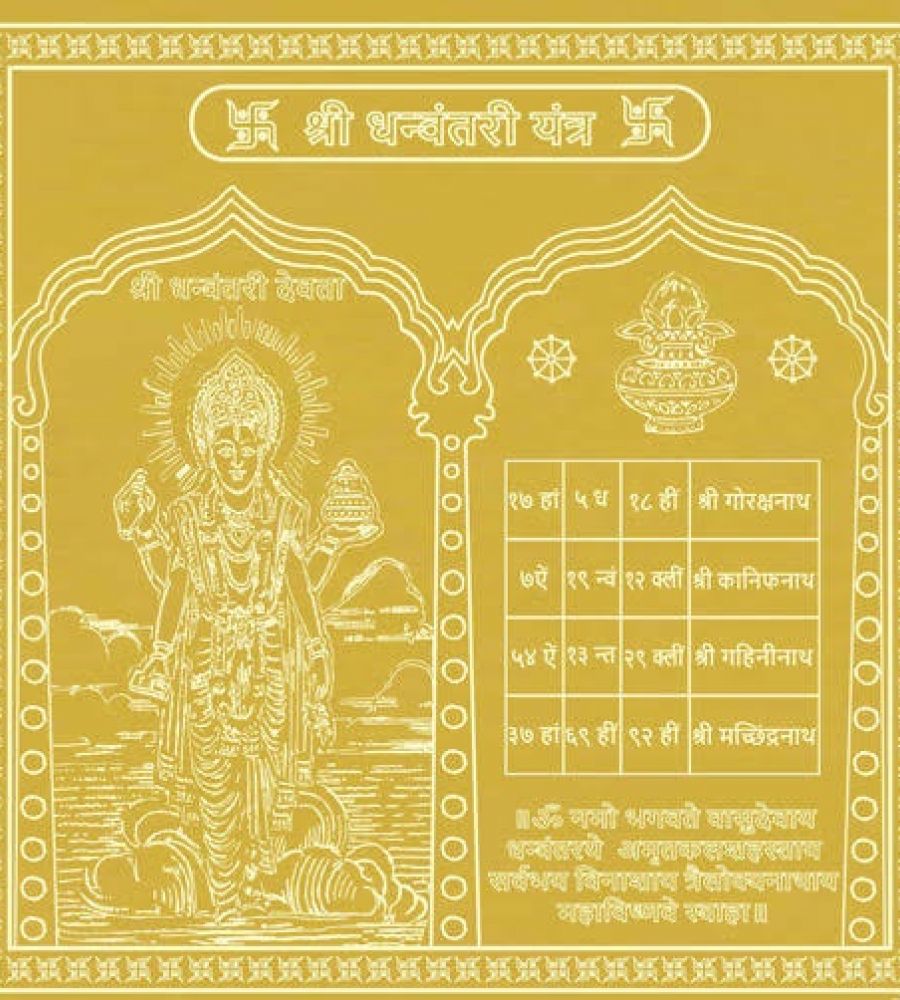 श्री धन्वंतरी यंत्र
श्री धन्वंतरी देवता
१७ हां ५ ध १८ हीं श्री गोरक्षनाथ
७ऐं १९ न्वं १२ क्लीं श्री कानिफनाथ
५४ ऐं १३ न्त २९ क्लीं श्री गहिनीनाथ
३७ हां ६९ हीं ९२ हीं श्री मच्छिंद्रनाथ
॥ॐ नमो भगवते वासुदेवाय
धन्वंतरये अमृतकलशहस्ताय
सर्वभय विनाशाय त्रैलोक्यनाथाय
महाविष्णवे स्वाहा॥